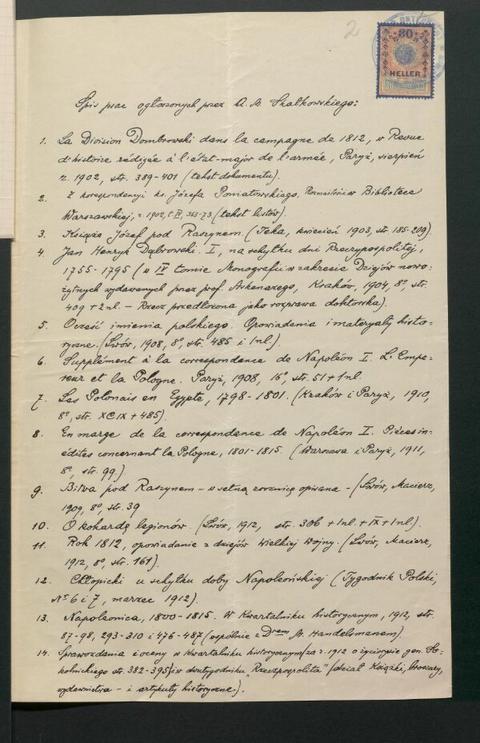 2
80
HELLER
Spis prac ogłoszonych przez A. M. Skałkowskiego:
1. La Division Dombrowski dans la campagne de 1812, w Revue
d'histoire rédigée à l'état-major de l'armée, Paryż, sierpień
r. 1902, str. 389-401 (tekst dokumentu).
2. Z korespondencyi ks. Józefa Poniatowskiego. w Bibliotece
Warszawskiej, r. 1902, t. 363-73 (tekst listów).
3. Książę Józef pod Raszynem (Teka, kwiecień 1903, str. 185-209).
4. Jan Henryk Dąbrowski. I, na schyłku dni Rzeczypospolitej,
1755-1795 (w IV tomie Monografii w zakresie Dziejów nowo-
żytnych wydawanych przez prof. Askenazego, Kraków, 1904, 8°, str.
409 + 2nl. – Rzecz przedłożona jako rozprawa doktorska).
5. O cześć imienia polskiego. Opowiadania i materyały histo-
ryczne. (Lwów, 1908, 8°, str. 485 i 1nl).
6. Supplément à la correspondance de Napoléon I. L'Empe-
reur et la Pologne. Paryż, 1908, 16°, str. 51 + 1nl.
7. Les Polonais en Egypte, 1798-1801. (Kraków i Paryż, 1910,
8°, str. + 485)
8. En marge de la correspondance de Napoléon I. Pièces in-
édites concernant la Pologne, 1801-1815. (Warszawa i Paryż, 1911,
8°, str. 99)
9. Bitwa pod Raszynem – w setną rocznicę opisana – (Lwów, Macierz,
1909, 8°, str. 39
10. O kokardę legionów. (Lwów, 1912, str. 306 + 1nl. + IX + 1nl).
11. Rok 1812, opowiadanie z dziejów Wielkiej Wojny. (Lwów, Macierz,
1912, 8°, str. 161).
12. Chłopicki u schyłku doby Napoleońskiej (Tygodnik Polski,
No 6 i 7, marzec 1912).
13. Napoleonica, 1800-1815. W Kwartalniku historycznym, 1912, str.
87-98, 293-310 i 476-487 (wspólnie z Drem M. Handelsmanem).
14. Sprawozdania i oceny w Kwartalniku historycznym (za r. 1912 o życiorysie gen. So-
kolnickiego str. 382-395) i w dwutygodniku „Rzeczpospolita" (dział Książki,
wydawnictwa – i artykuły historyczne).